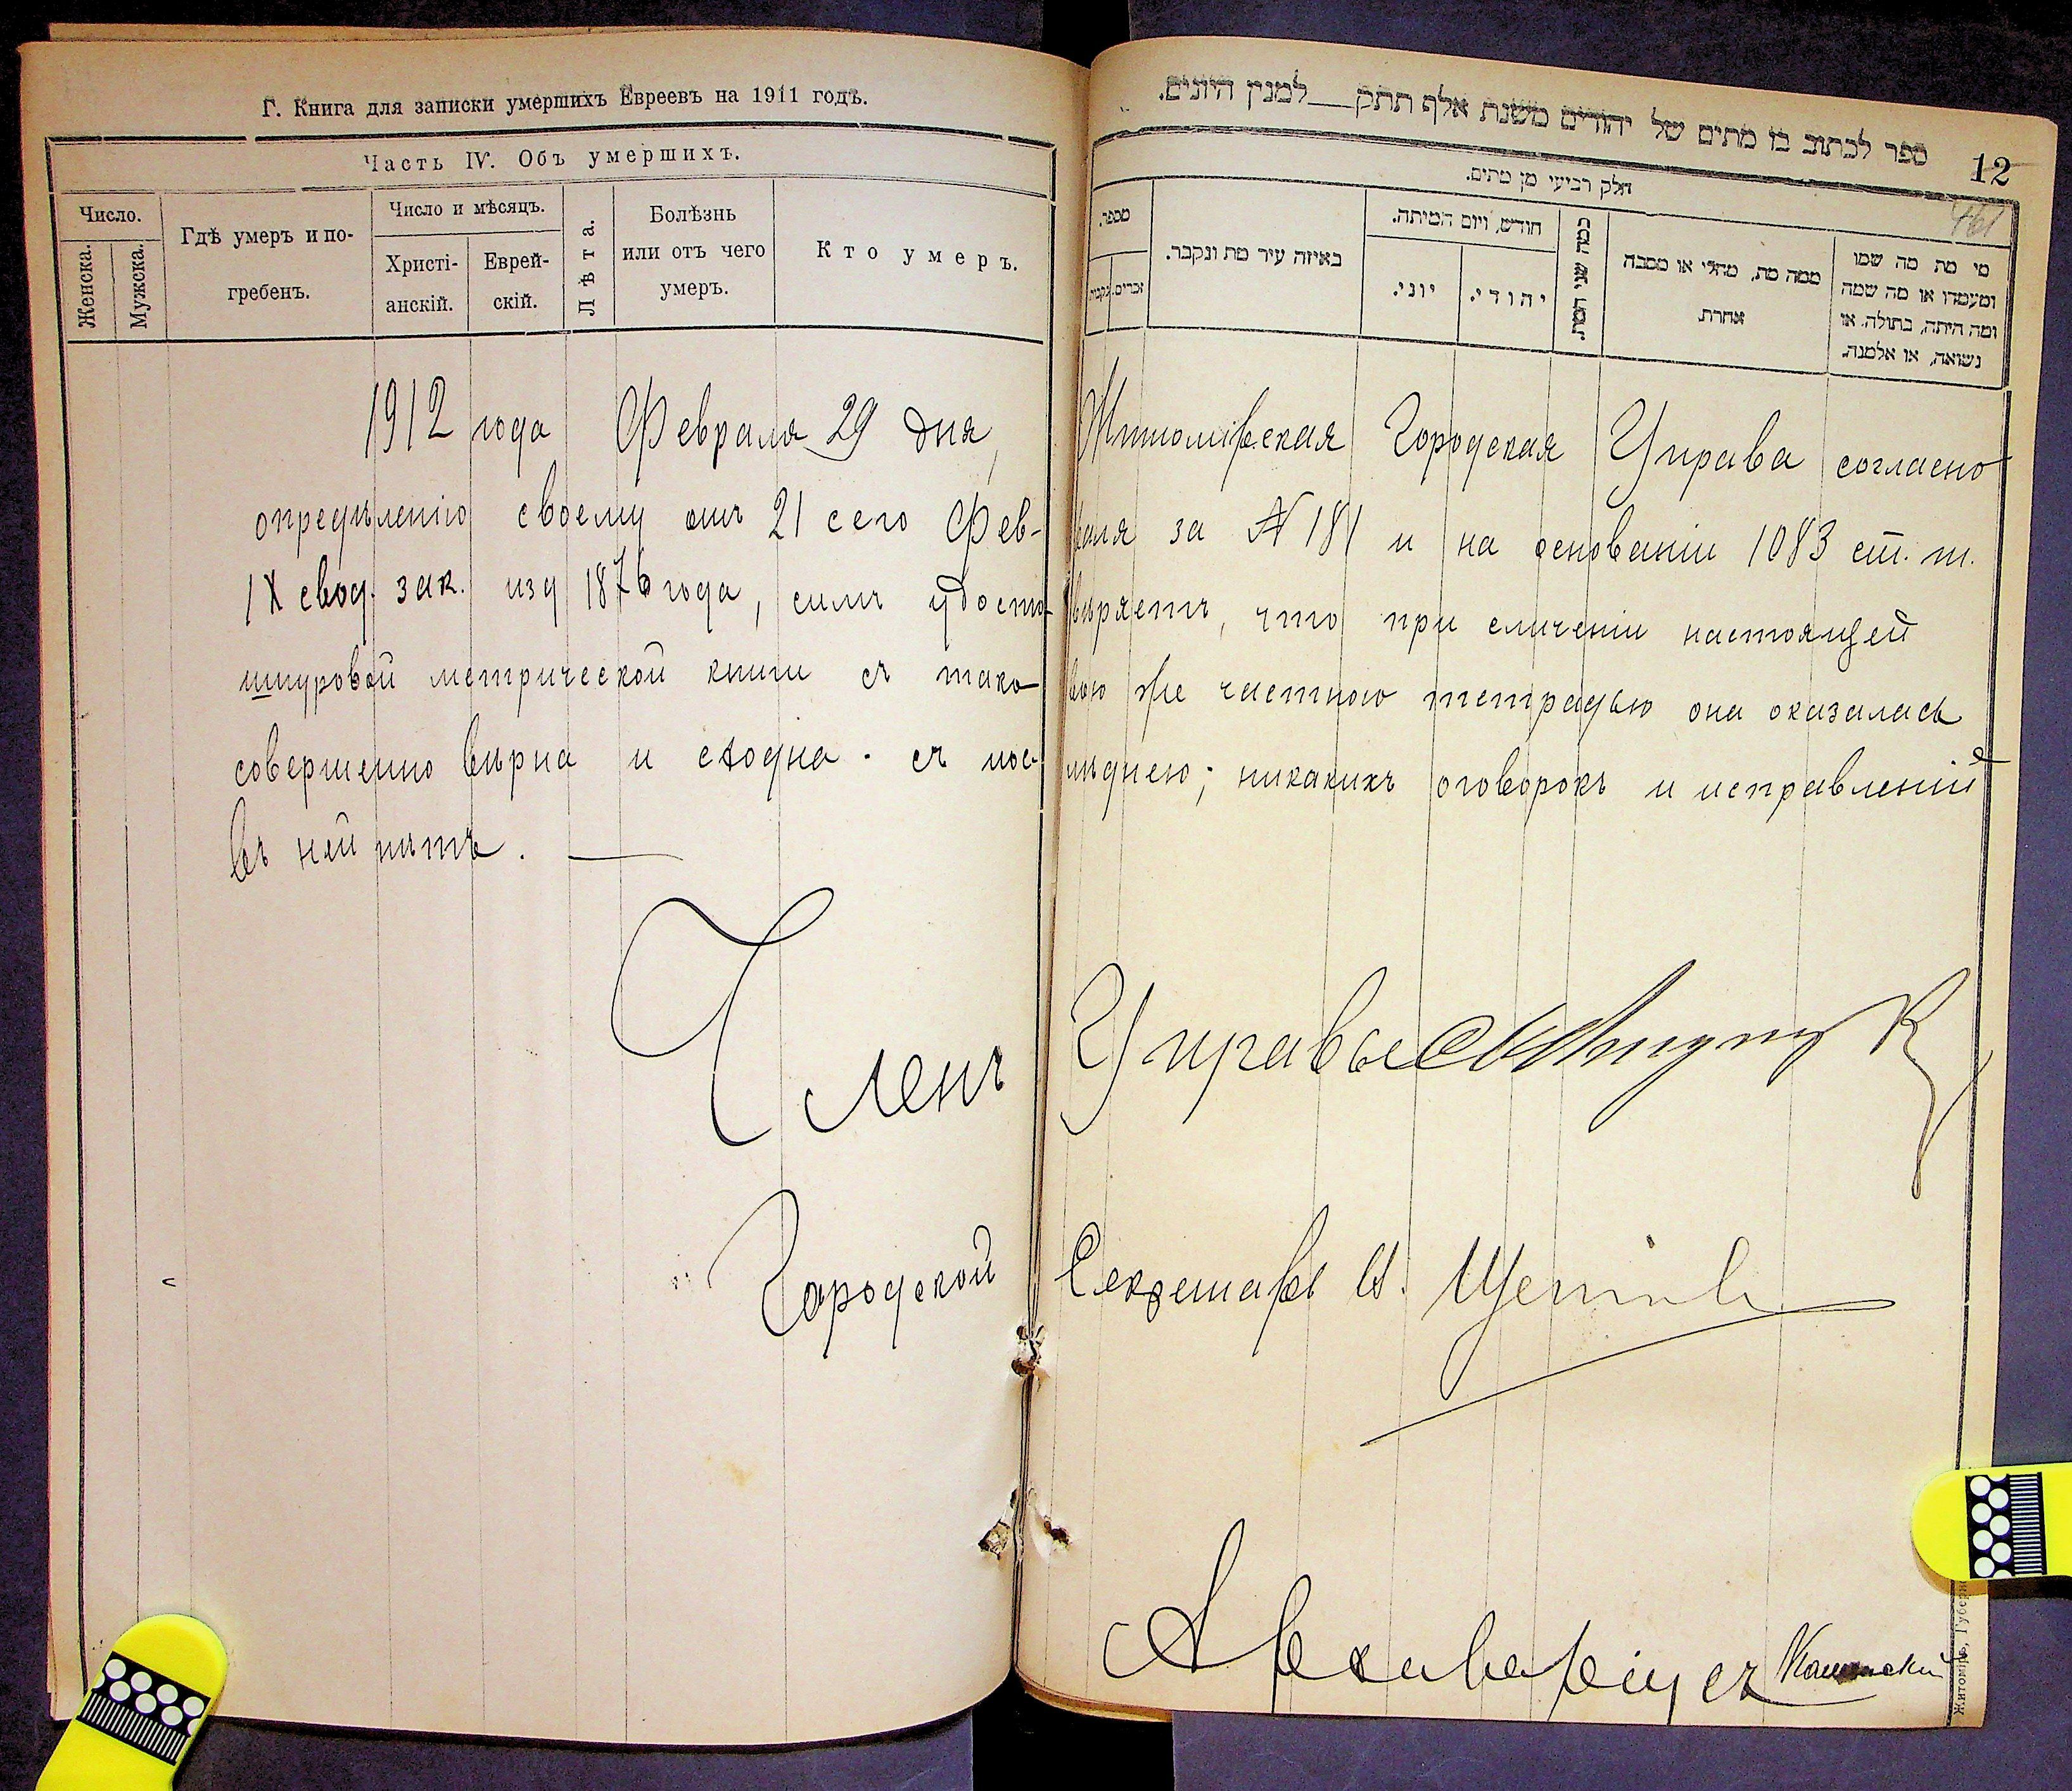 Г. Книга для записки умершихъ Евреевъ на 1911 годъ.
Часть IV. Объ умершихъ.
Число.
Женска.
Мужска.
Гдѣ умеръ и по-
гребенъ.
Число и мѣсяцъ.
Христі-
анскій.
Еврей-
скій.
Лѣта.
Болѣзнь
или отъ чего
умеръ.
Кто умеръ.
ספר לכתוב בו מתים של יהודים משנת אלף תתק— למנין היונים.
12
461
חלק רביעי מן מתים.
מספר.
נקבות
זכרים.
באיזה עיר מת ונקבר.
חודש, ויום המיתה.
יוני.
יהודי.
כמה שני המת.
ממה מת, מחלי או מסבה
אחרת.
מי מת מה שמו
ומעמדו או מה שמה
ומה היתה, בתולה. או
נשואה, או אלמנה.
1912 года Февраля 29 дня, Житомірская Городская Управа согласно
опредѣленію своему отъ 21 сего Фев-раля за № 181 и на основаніи 1083 ст. т.
IX свод. зак. изд 1876 года, симъ удосто-вѣряетъ, что при сличеніи настоящей
шнуровой метрической книги съ тако-вою же частною тетрадью она оказалась
совершенно вѣрна и сходна съ пос-лѣднею; никакихъ оговорокъ и исправленій
въ ней нѣтъ. —
Членъ Управы
Городской Секретарь
Архиваріусъ
Житоміръ, Губерн